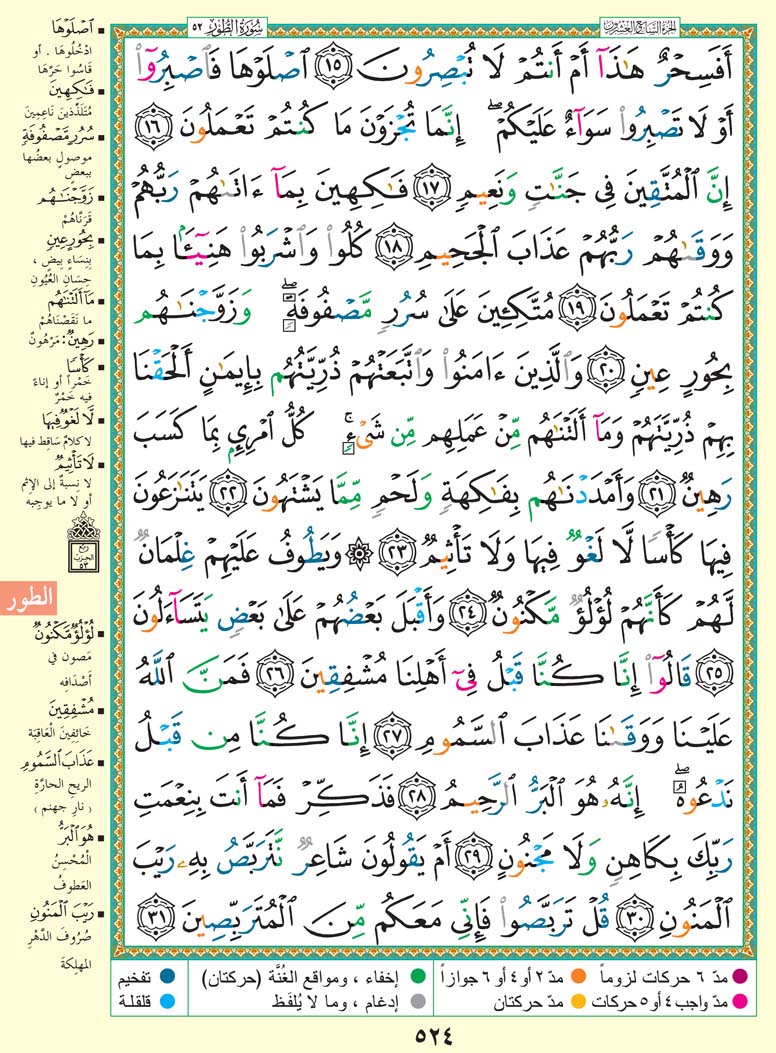 سُورَةُ الطُّورِ ٥٢
الجزء السابع والعشرون
أَفَسِحْرٌ هَٰذَآ أَمْ أَنتُمْ لَا تُبْصِرُونَ ١٥ ٱصْلَوْهَا فَٱصْبِرُوٓا۟
أَوْ لَا تَصْبِرُوا۟ سَوَآءٌ عَلَيْكُمْ ۖ إِنَّمَا تُجْزَوْنَ مَا كُنتُمْ تَعْمَلُونَ ١٦
إِنَّ ٱلْمُتَّقِينَ فِى جَنَّٰتٍ وَنَعِيمٍ ١٧ فَٰكِهِينَ بِمَآ ءَاتَىٰهُمْ رَبُّهُمْ
وَوَقَىٰهُمْ رَبُّهُمْ عَذَابَ ٱلْجَحِيمِ ١٨ كُلُوا۟ وَٱشْرَبُوا۟ هَنِيٓـًٔۢا بِمَا
كُنتُمْ تَعْمَلُونَ ١٩ مُتَّكِـِٔينَ عَلَىٰ سُرُرٍ مَّصْفُوفَةٍ ۖ وَزَوَّجْنَٰهُم
بِحُورٍ عِينٍ ٢٠ وَٱلَّذِينَ ءَامَنُوا۟ وَٱتَّبَعَتْهُمْ ذُرِّيَّتُهُم بِإِيمَٰنٍ أَلْحَقْنَا
بِهِمْ ذُرِّيَّتَهُمْ وَمَآ أَلَتْنَٰهُم مِّنْ عَمَلِهِم مِّن شَىْءٍ ۚ كُلُّ ٱمْرِئٍۭ بِمَا كَسَبَ
رَهِينٌ ٢١ وَأَمْدَدْنَٰهُم بِفَٰكِهَةٍ وَلَحْمٍ مِّمَّا يَشْتَهُونَ ٢٢ يَتَنَٰزَعُونَ
فِيهَا كَأْسًا لَّا لَغْوٌ فِيهَا وَلَا تَأْثِيمٌ ٢٣ ۞ وَيَطُوفُ عَلَيْهِمْ غِلْمَانٌ
لَّهُمْ كَأَنَّهُمْ لُؤْلُؤٌ مَّكْنُونٌ ٢٤ وَأَقْبَلَ بَعْضُهُمْ عَلَىٰ بَعْضٍ يَتَسَآءَلُونَ
٢٥ قَالُوٓا۟ إِنَّا كُنَّا قَبْلُ فِىٓ أَهْلِنَا مُشْفِقِينَ ٢٦ فَمَنَّ ٱللَّهُ
عَلَيْنَا وَوَقَىٰنَا عَذَابَ ٱلسَّمُومِ ٢٧ إِنَّا كُنَّا مِن قَبْلُ
نَدْعُوهُ ۖ إِنَّهُۥ هُوَ ٱلْبَرُّ ٱلرَّحِيمُ ٢٨ فَذَكِّرْ فَمَآ أَنتَ بِنِعْمَتِ
رَبِّكَ بِكَاهِنٍ وَلَا مَجْنُونٍ ٢٩ أَمْ يَقُولُونَ شَاعِرٌ نَّتَرَبَّصُ بِهِۦ رَيْبَ
ٱلْمَنُونِ ٣٠ قُلْ تَرَبَّصُوا۟ فَإِنِّى مَعَكُم مِّنَ ٱلْمُتَرَبِّصِينَ ٣١
اصْلَوْهَا
ادْخُلُوهَا . أو
قَاسُوا حَرَّهَا
فَٰكِهِينَ
مُتَلَذِّذِينَ نَاعِمِينَ
سُرُرٍ مَّصْفُوفَةٍ
موصولٍ بعضُها
ببعض
زَوَّجْنَٰهُم
قَرَنَّاهُمْ
بِحُورٍ عِينٍ
بِنِسَاءٍ بِيضٍ ،
حِسَانِ العُيُونِ
مَآ أَلَتْنَٰهُم
ما نَقَصْنَاهُمْ
رَهِينٌ : مَرْهُونٌ
كَأْسًا
خَمْراً أو إناءً
فيه خَمْرٌ
لَّا لَغْوٌ فِيهَا
لا كلامٌ ساقِط فيها
لَا تَأْثِيمٌ
لا نِسبةٌ إلى الإثم
أو لا ما يوجِبه
ربع
الحزب
٥٣
الطور
لُؤْلُؤٌ مَّكْنُونٌ
مَصون في
أَصْدَافِه
مُشْفِقِينَ
خَائِفِينَ العَاقِبَة
عَذَابَ السَّمُومِ
الريح الحارَّةِ
( نارِ جهنم )
هُوَ الْبَرُّ
الْمُحْسِنُ
العَطوفُ
رَيْبَ الْمَنُونِ
صُرُوفَ الدَّهْرِ
المهلِكةَ
مدّ ٦ حركات لزوماً
مدّ ٢ أو ٤ أو ٦ جوازاً
إخفاء ، ومواقع الغُنَّة (حركتان)
تفخيم
مدّ واجب ٤ أو ٥ حركات
مدّ حركتان
إدغام ، وما لا يُلفَظ
قلقلة
٥٢٤